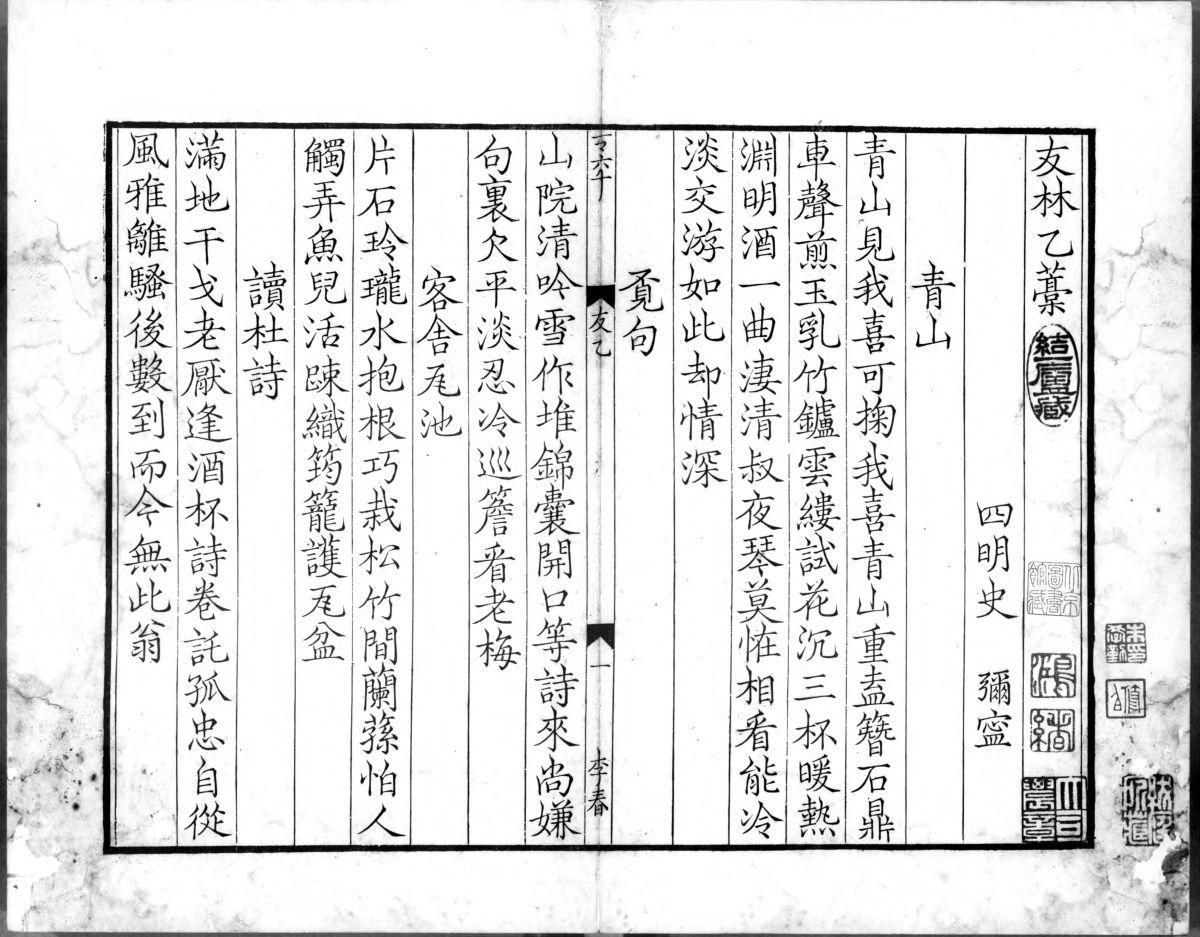 友林乙藁
四明史 彌寍
青山
青山見我喜可掬我喜青山重盍簪石鼎
車聲煎玉乳竹鑪雲縷試花沉三杯暖熱
淵明酒一曲淒清叔夜琴莫恠相看能冷
淡交游如此却情深
覔句
友乙
一
李春
山院清吟雪作堆錦囊開口等詩來尚嫌
句裏欠平淡忍冷巡簷看老梅
客舍瓦池
片石玲瓏水抱根巧栽松竹間蘭蓀怕人
觸弄魚兒活踈織筠籠護瓦盆
讀杜詩
滿地干戈老厭逢酒杯詩卷託孤忠自從
風雅離騷後數到而今無此翁